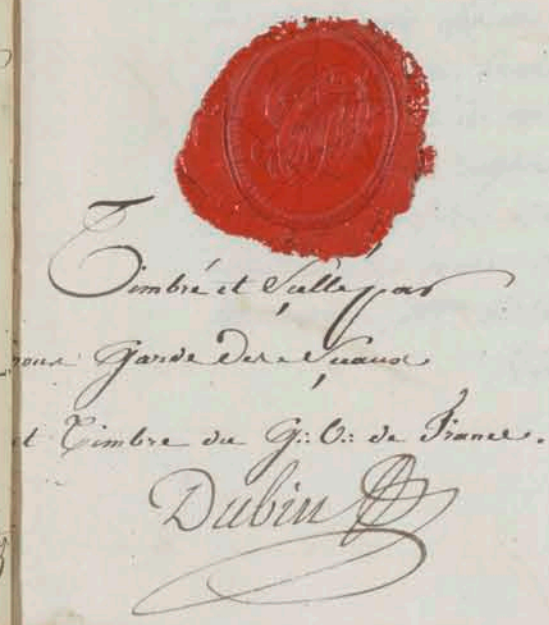 Timbré et Scellé par
nous Garde des Sceaux
et Timbre du G∴ O∴ de France.
Dubin